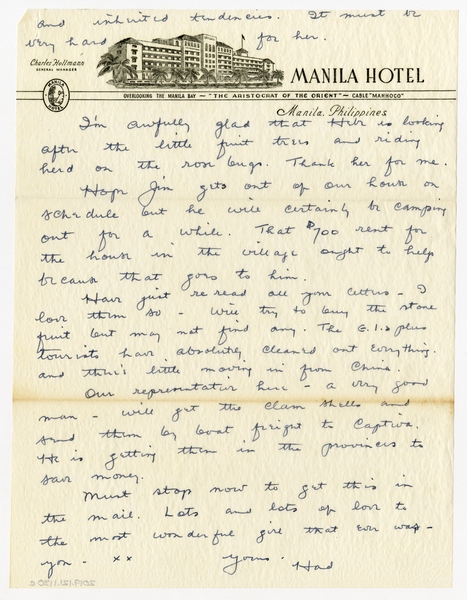 and inherited tendencies. It must be
very hard for her.
Charles Holtmann
GENERAL MANAGER
MANILA HOTEL
MANILA HOTEL
OVERLOOKING THE MANILA BAY — "THE ARISTOCRAT OF THE ORIENT" — CABLE "MANHOCO"
Manila, Philippines
I'm awfully glad that is looking
after the little fruit trees and riding
herd on the rose bugs. Thank her for me.
Hope Jim gets out of our house on
schedule but he will certainly be camping
out for a while. That $700 rent for
the house in the village ought to help
because that goes to him.
Have just re read all your letters - I
love them so - will try to buy the stone
fruit but may not find any. The G.I.s plus
tourists have absolutely cleaned out everything.
and there's little moving in from China.
Our representative here - a very good
man - will get the clam shells and
send them by boat freight to Captiva.
He is getting them in the provinces to
save money.
Must stop now to get this in
the mail. Lots and lots of love to
the most wonderful girl that ever was -
you - xx Yours.
Had